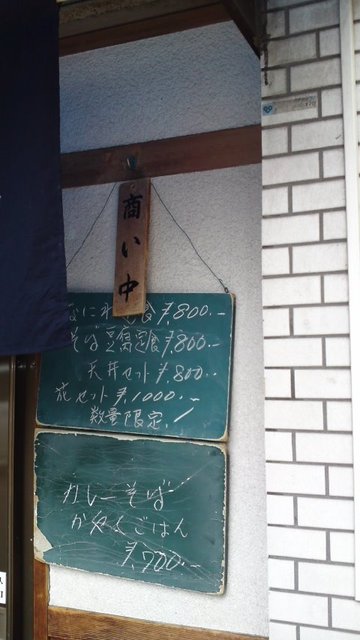 商い中
なにわ定食 ¥800.-
そば豆腐定食 ¥800.-
天丼セット ¥800.-
セット ¥1000.-
数量限定！
カレーそば
かやくごはん
¥700.-